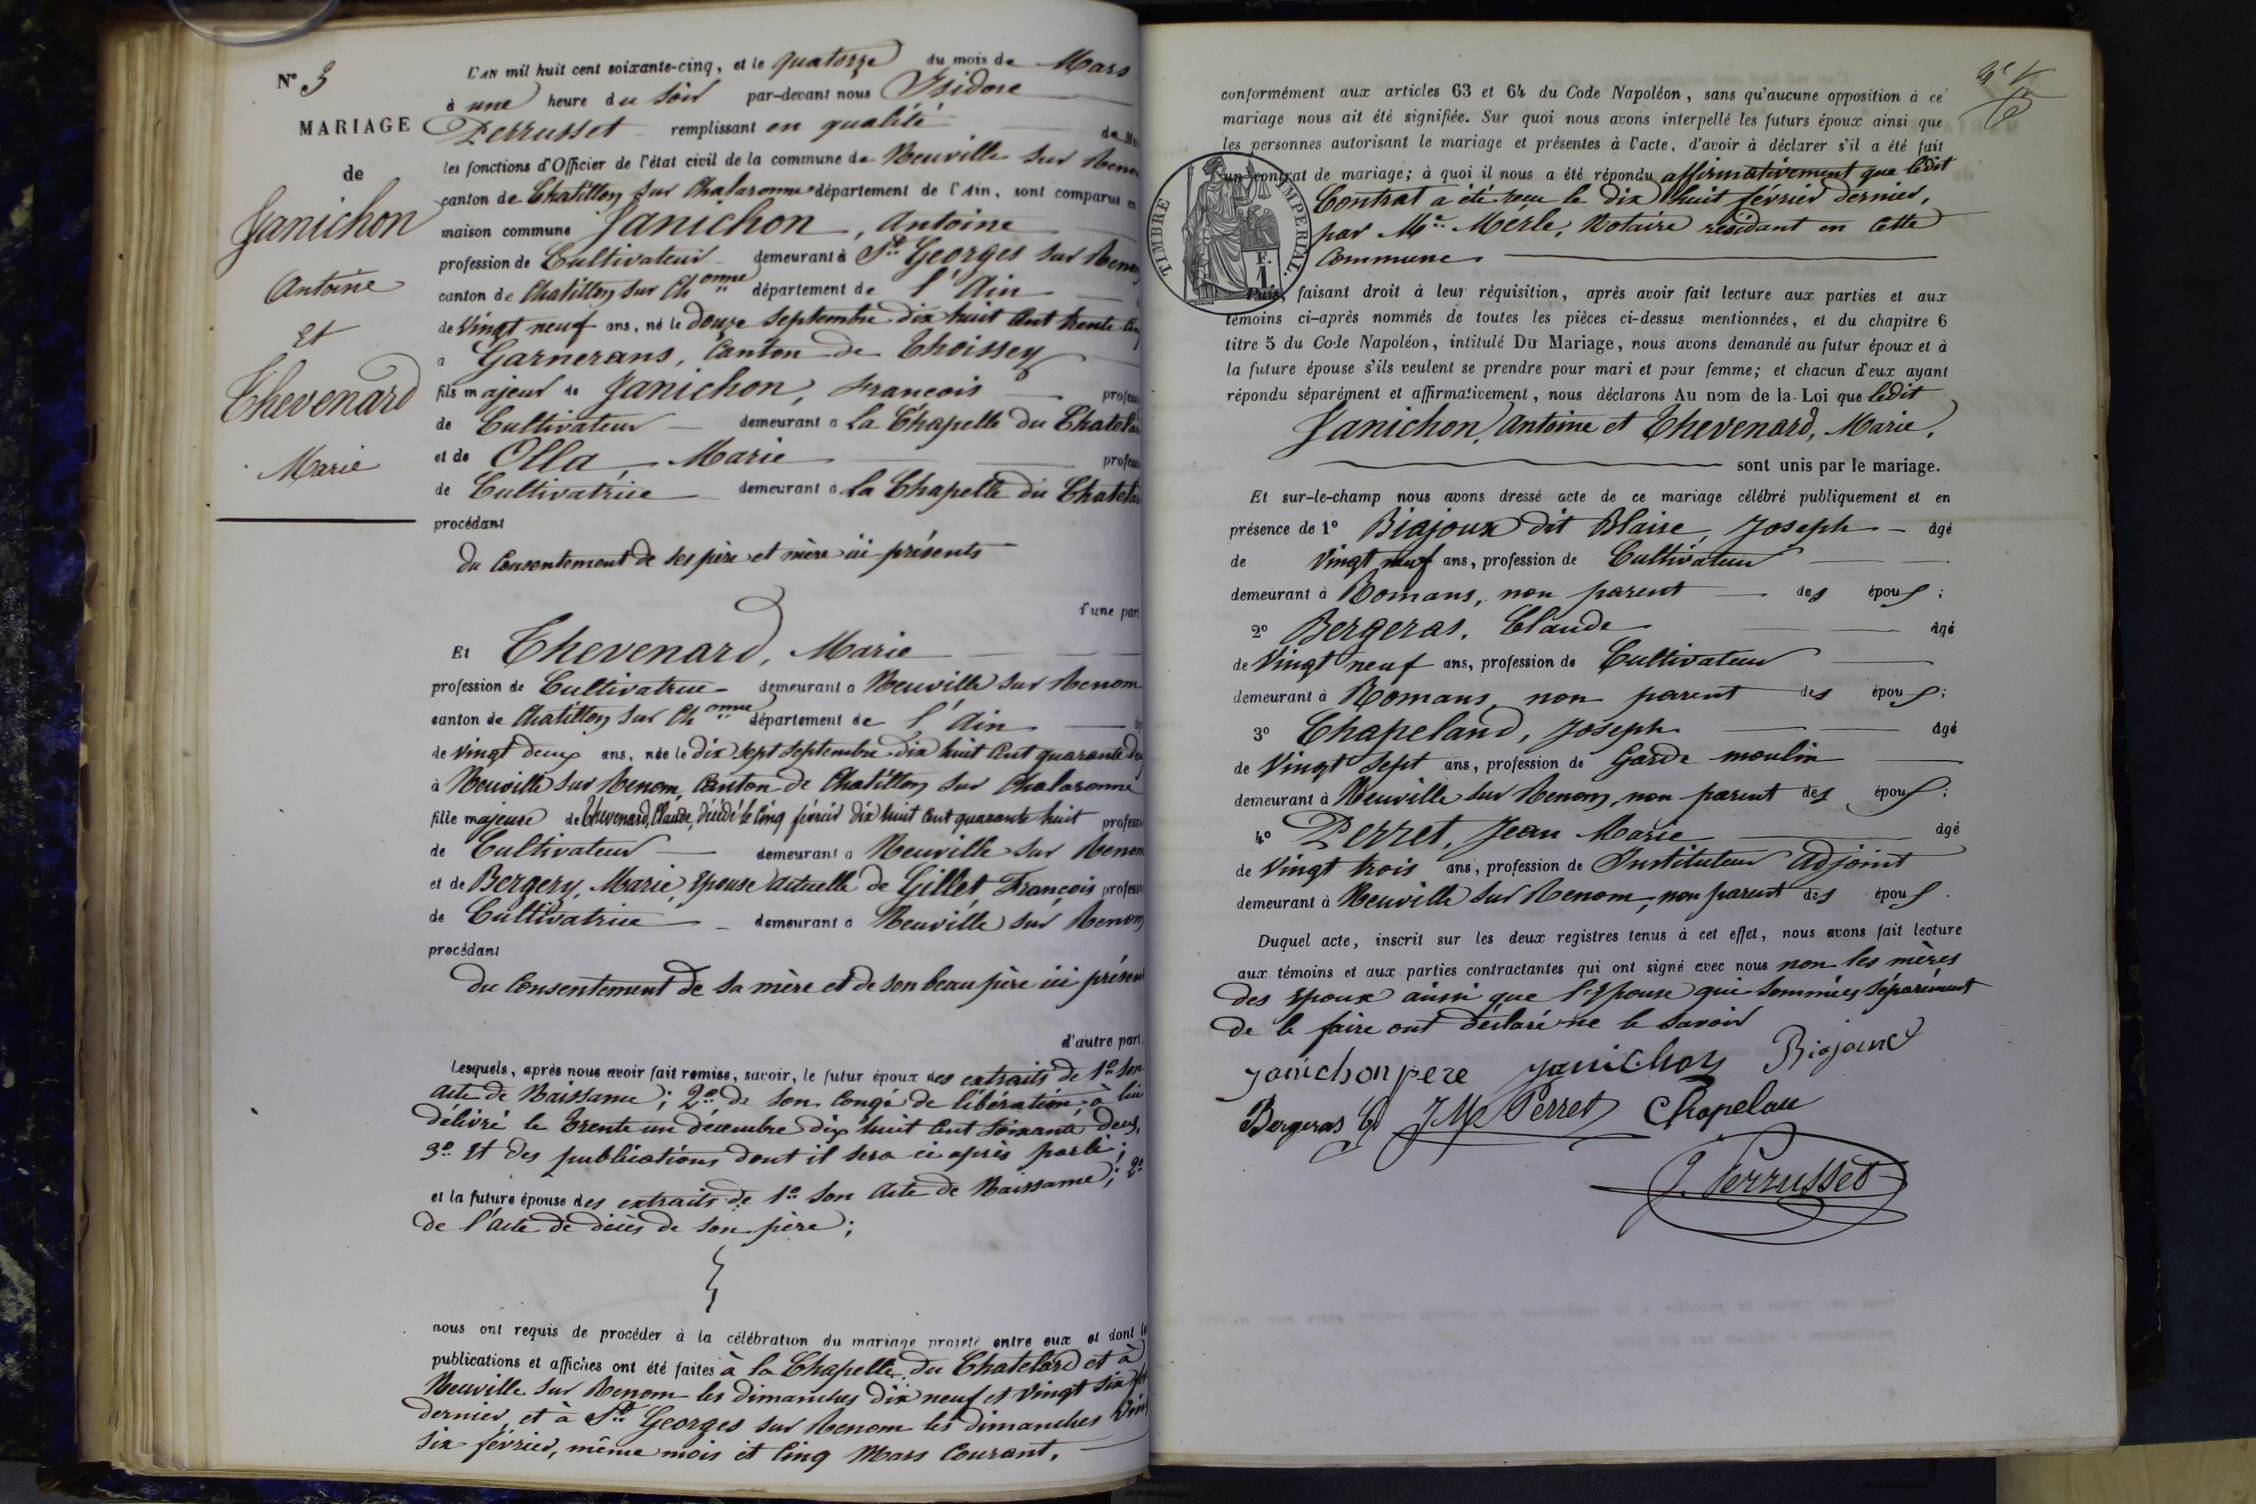 N° 3
MARIAGE
de
Janichon
Antoine
et
Thevenard
Marie
L'AN mil huit cent soixante-cinq, et le quatorze du mois de Mars
à une heure du soir par-devant nous Isidore
Perrusset remplissant en qualité de
les fonctions d'Officier de l'état civil de la commune de Neuville sur Renom
canton de Chatillon sur Chalaronne département de l'Ain, sont comparus en
maison commune Janichon, Antoine
profession de Cultivateur demeurant à St Georges sur Renom
canton de Chatillon sur Chonne département de l'Ain
de vingt neuf ans, né le douze septembre dix huit cent trente cinq
à Garnerans, Canton de Thoissey
fils majeur de Janichon, François profession
de Cultivateur demeurant à la Chapelle du Chatelard
et de Olla, Marie profession
de Cultivatrice demeurant à la Chapelle du Chatelard
procédant
du Consentement de ses père et mère ici présents
d'une part
Et Thevenard, Marie
profession de Cultivatrice demeurant à Neuville sur Renom
canton de Chatillon sur Chonne département de l'Ain
de vingt deux ans, née le dix sept septembre dix huit cent quarante deux
à Neuville sur Renom, Canton de Chatillon sur Chalaronne
fille majeure de Thevenard, Claude, décédé le cinq février dix huit cent quarante huit profession
de Cultivateur demeurant à Neuville sur Renom
et de Bergery, Marie, épouse actuelle de Gillet, François profession
de Cultivatrice demeurant à Neuville sur Renom
procédant
du Consentement de sa mère et de son beau père ici présents
d'autre part.
Lesquels, après nous avoir fait remise, savoir, le futur époux des extraits de 1° son
acte de Naissance; 2° de son congé de libération à lui
délivré le trente un décembre dix huit cent soixante deux,
3° et des publications dont il sera ci après parlé;
et la future épouse des extraits de 1° son acte de Naissance; 2°
de l'acte de décès de son père;
nous ont requis de procéder à la célébration du mariage projeté entre eux et dont les
publications et affiches ont été faites à la Chapelle du Chatelard et à
Neuville sur Renom les dimanches dix neuf et vingt six
dernier, et à St Georges sur Renom les dimanches vingt
six février, même mois et cinq Mars Courant.
conformément aux articles 63 et 64 du Code Napoléon, sans qu'aucune opposition à ce
mariage nous ait été signifiée. Sur quoi nous avons interpellé les futurs époux ainsi que
les personnes autorisant le mariage et présentes à l'acte, d'avoir à déclarer s'il a été fait
un contrat de mariage; à quoi il nous a été répondu affirmativement que ledit
Contrat a été reçu le dix huit février dernier,
par Me Merle, Notaire résidant en cette
Commune.
TIMBRE IMPERIAL.
F.
1
Puis, faisant droit à leur réquisition, après avoir fait lecture aux parties et aux
témoins ci-après nommés de toutes les pièces ci-dessus mentionnées, et du chapitre 6
titre 5 du Code Napoléon, intitulé Du Mariage, nous avons demandé au futur époux et à
la future épouse s'ils veulent se prendre pour mari et pour femme; et chacun d'eux ayant
répondu séparément et affirmativement, nous déclarons Au nom de la Loi que ledit
Janichon, Antoine et Thevenard, Marie,
sont unis par le mariage.
Et sur-le-champ nous avons dressé acte de ce mariage célébré publiquement et en
présence de 1° Biajoux dit Blaise, Joseph âgé
de vingt neuf ans, profession de Cultivateur
demeurant à Romans, non parent des époux;
2° Bergeras, Claude âgé
de vingt neuf ans, profession de Cultivateur
demeurant à Romans, non parent des époux;
3° Chapeland, Joseph âgé
de vingt sept ans, profession de Garde moulin
demeurant à Neuville sur Renom, non parent des époux;
4° Perret, Jean Marie âgé
de vingt trois ans, profession de Instituteur adjoint
demeurant à Neuville sur Renom, non parent des époux.
Duquel acte, inscrit sur les deux registres tenus à cet effet, nous avons fait lecture
aux témoins et aux parties contractantes qui ont signé avec nous non les mères
des époux ainsi que l'épouse qui sommées séparément
de le faire ont déclaré ne le savoir
janichon pere janichon Biajoux
Bergeras Cl JM Perret Chapelan
J. Perrusset